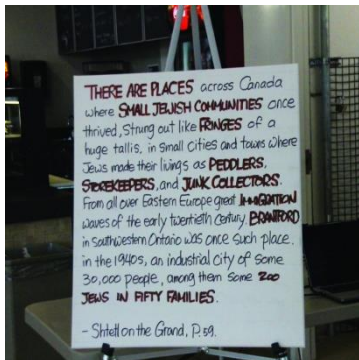 THERE ARE PLACES across Canada
where SMALL JEWISH COMMUNITIES once
thrived, Strung out like FRINGES of a
huge tallis, in small cities and towns where
Jews made their livings as PEDDLERS,
STOREKEEPERS, and JUNK COLLECTORS.
From all over Eastern Europe great IMMIGRATION
waves of the early twentieth Century. BRANTFORD
in southwestern Ontario was once such place.
in the 1940s, an industrial city of some
30,000 people, among them some 200
JEWS IN FIFTY FAMILIES.
- Shtetl on the Grand, P.59.